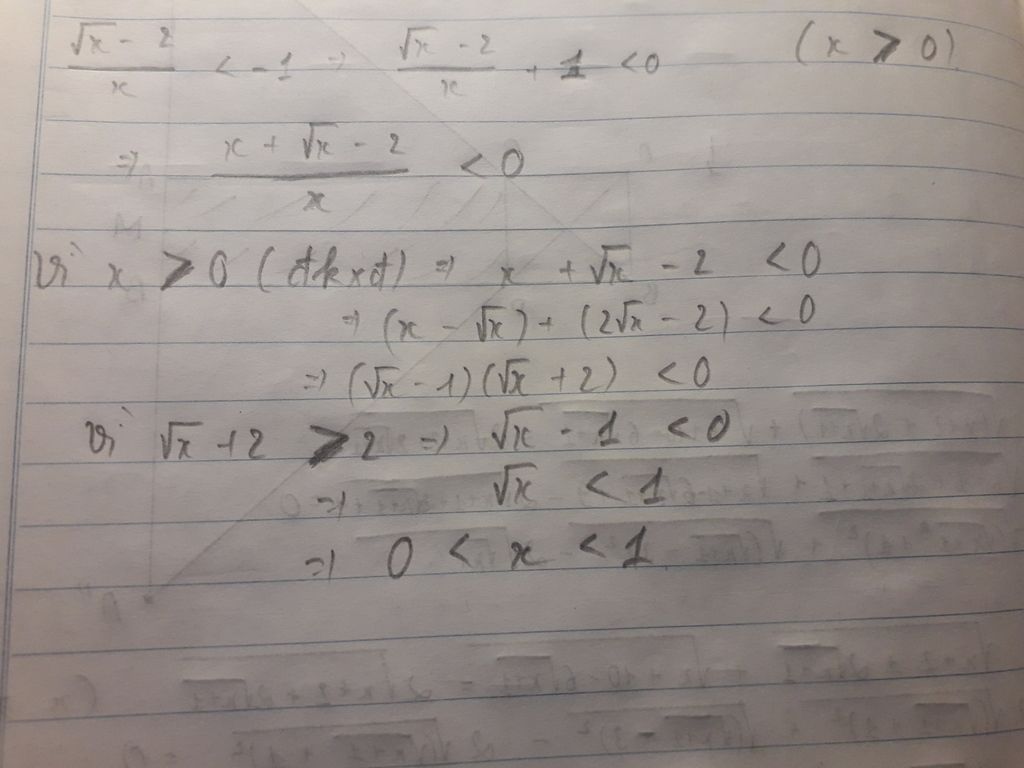 (√x - 2)/x < -1 ⇒ (√x - 2)/x + 1 < 0 (x > 0)
⇒ (x + √x - 2)/x < 0
Vì x > 0 (đkxđ) ⇒ x + √x - 2 < 0
⇒ (x - √x) + (2√x - 2) < 0
⇒ (√x - 1)(√x + 2) < 0
Vì √x + 2 > 2 ⇒ √x - 1 < 0
⇒ √x < 1
⇒ 0 < x < 1